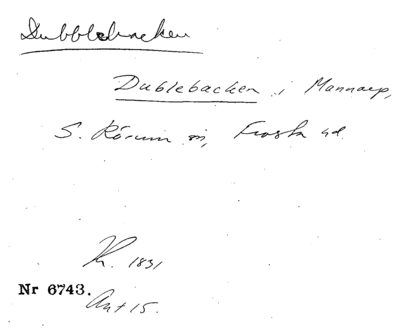 Dubblebacken
Dublebacken i Mannarp,
S. Rörum sn, Frosta hd.
Kr. 1831
Nr 6743.
Ant 15.